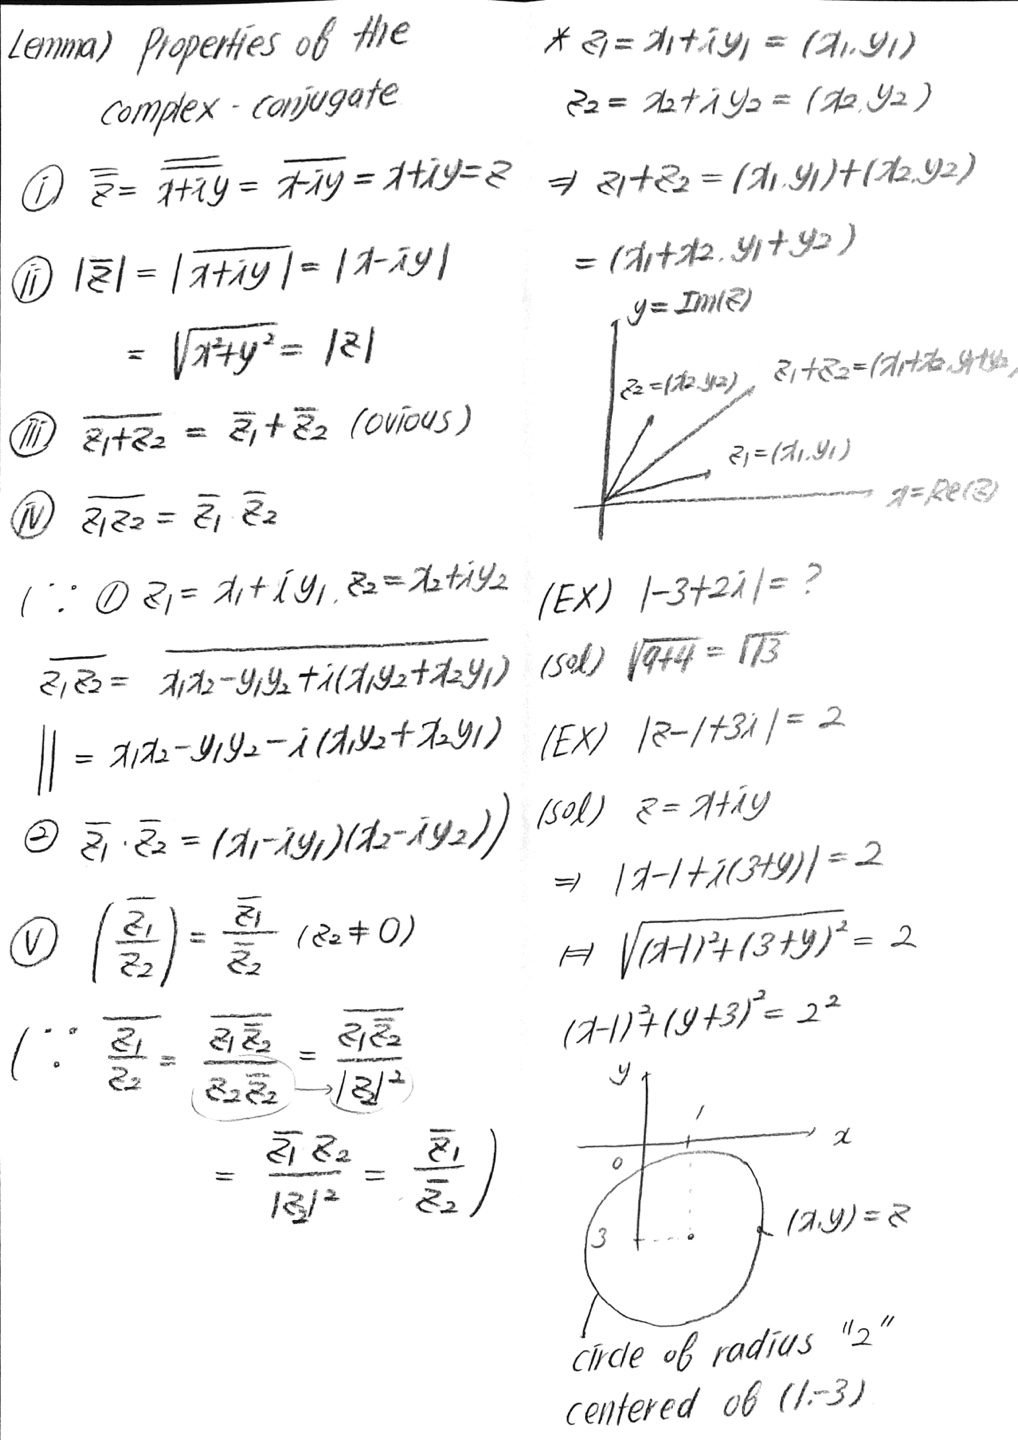 Lemma) Properties of the
complex-conjugate
ⓘ z̿ = \overline{\overline{x+iy}} = \overline{x-iy} = x+iy = z
ⓘⓘ |z̄| = |\overline{x+iy}| = |x-iy|
= √(x²+y²) = |z|
ⓘⓘⓘ \overline{z₁+z₂} = z̄₁+z̄₂ (ovious)
ⓘⓥ \overline{z₁z₂} = z̄₁ z̄₂
(∵ ① z₁ = x₁+iy₁, z₂ = x₂+iy₂
\overline{z₁z₂} = \overline{x₁x₂-y₁y₂+i(x₁y₂+x₂y₁)}
|| = x₁x₂-y₁y₂-i(x₁y₂+x₂y₁)
② z̄₁·z̄₂ = (x₁-iy₁)(x₂-iy₂))
ⓥ (\overline{z₁}/z₂) = z̄₁/z̄₂ (z₂≠0)
(∵ \overline{z₁/z₂} = \overline{z₁z̄₂}/z₂z̄₂ → = \overline{z₁z̄₂}/|z₂|²
= z̄₁z₂/|z₂|² = z̄₁/z̄₂)
* z₁ = x₁+iy₁ = (x₁,y₁)
z₂ = x₂+iy₂ = (x₂,y₂)
⇒ z₁+z₂ = (x₁,y₁)+(x₂,y₂)
= (x₁+x₂, y₁+y₂)
y=Im(z)
z₂=(x₂,y₂) z₁+z₂=(x₁+x₂,y₁+y₂)
z₁=(x₁,y₁)
x=Re(z)
(EX) |-3+2i| = ?
(sol) √(9+4) = √13
(EX) |z-1+3i| = 2
(sol) z = x+iy
⇒ |x-1+i(3+y)| = 2
⇒ √((x-1)²+(3+y)²) = 2
(x-1)²+(y+3)² = 2²
y
1
x
0
3
(x,y)=z
circle of radius "2"
centered of (1,-3)